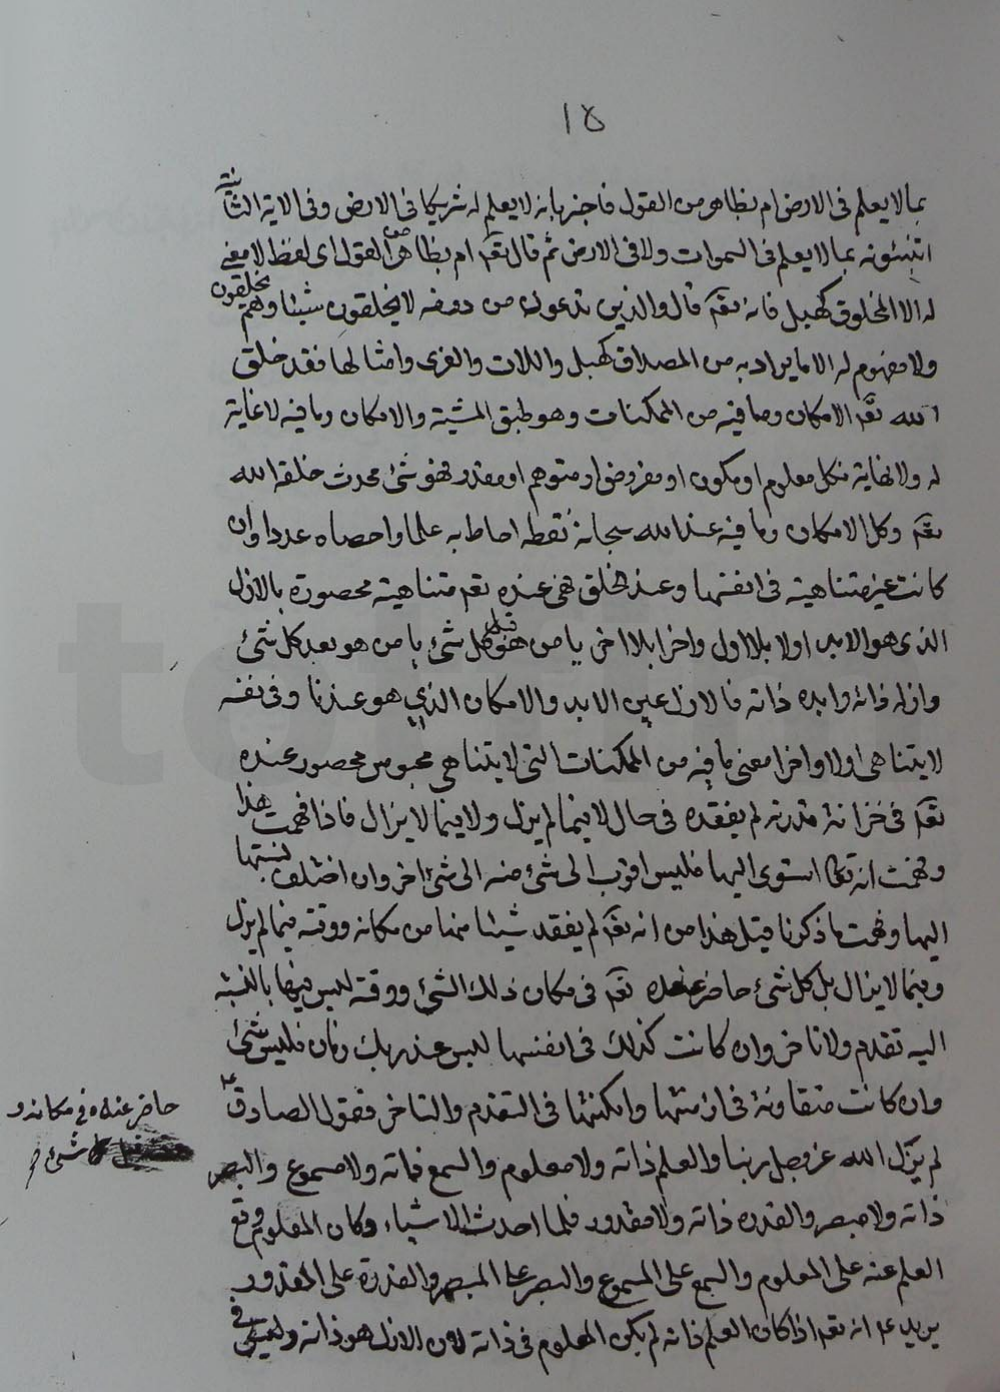 ١٥
بما لا يعلم فى الارض ام بظاهر من القول فاخبر بانه لا يعلم له شريكا فى الارض وفى الاية الثانية
اتنبئونه بما لا يعلم فى السموات ولا فى الارض ثم قال تعه ام بظاهر من القول اى لفظ لا معنى
له الا المخلوق كهبل فانه تعه قال والذين تدعون من دونه لا يخلقون شيئا وهم يخلقون
ولا مفهوم له الا ما يراد به من المصداق كهبل واللات والعزى وامثالها فقد خلق
الله تعه الامكان وما فيه من الممكنات وهو طبق المشية والامكان وما فيه لا غاية
له ولا نهاية فكل معلوم او مكون او مفروض او متوهم او مقدر فهو شئ محدث خلقه الله
تعه وكل الامكان وما فيه عند الله سبحانه نقطة احاط به علما واحصاه عددا وان
كانت غير متناهية فى انفسها وعند الخلق فهى عنده تعه متناهية محصورة بالازل
الذى هو الابد اولا بلا اول واخرا بلا اخر يا من هو قبل كل شئ يا من هو بعد كل شئ
وازله ذاته وابده ذاته فالازل عين الابد والامكان الذى هو عندنا وفى نفسه
لا يتناهى اولا واخرا معنى ما فيه من الممكنات التى لا يتناهى محبوس محصور عنده
تعه فى خزانة قدرته لم يفقده فى حال لا فيما لم يزل ولا فيما لا يزال فاذا فهمت هذا
وفهمت انه تعه استوى اليها فليس اقرب الى شئ منه الى شئ اخر وان اختلف نسبتها
اليها وفهمت ما ذكرنا قبل هذا من انه تعه لم يفقد شيئا منها من مكانه ووقته فيما لم يزل
وفيما لا يزال بل كل شئ حاضر عنده تعه فى مكان ذلك الشئ ووقته ليس فيها بالنسبة
اليه تقدم ولا تاخر وان كانت كذلك فى انفسها ليس عند ربك زمان فليس شئ
وان كانت متفاوتة فى ازمنتها وامكنتها فى التقدم والتاخر فقول الصادق ع
حاضر عنده فى مكانه و
قبل شئ
لم يزل الله عز وجل ربنا والعلم ذاته ولا معلوم والسمع ذاته ولا مسموع والبصر
ذاته ولا مبصر والقدرة ذاته ولا مقدور فلما احدث الاشياء وكان المعلوم وقع
العلم عنه على المعلوم والسمع على المسموع والبصر على المبصر والقدرة على المقدور
يريد ع انه تعه اذا كان العلم ذاته لم يكن المعلوم فى ذاته لان الازل هو ذاته وليس فى